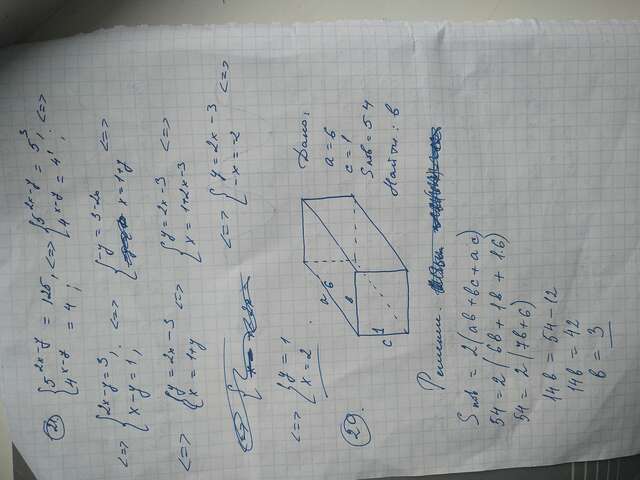 21. { 5^(2x-y) = 125, <=> { 5^(2x-y) = 5^3, <=>
{ 4^(x-y) = 4 ; { 4^(x-y) = 4^1 ;
<=> { 2x-y=3, <=> { -y = 3-2x <=>
{ x-y=1, { x=1+y
<=> { y=2x-3 <=> { y=2x-3 <=>
{ x=1+y { x=1+2x-3
<=> { y=2x-3 <=>
{ -x=-2
<=> { y=1
{ x=2.
29.
a 6
в
c 1
Дано:
a=6
c=1
Sпов=54
Найти: в
Решение.
Sпов = 2(aв+вc+ac)
54=2(6в+1в+1·6)
54=2(7в+6)
14в=54-12
14в=42
в=3